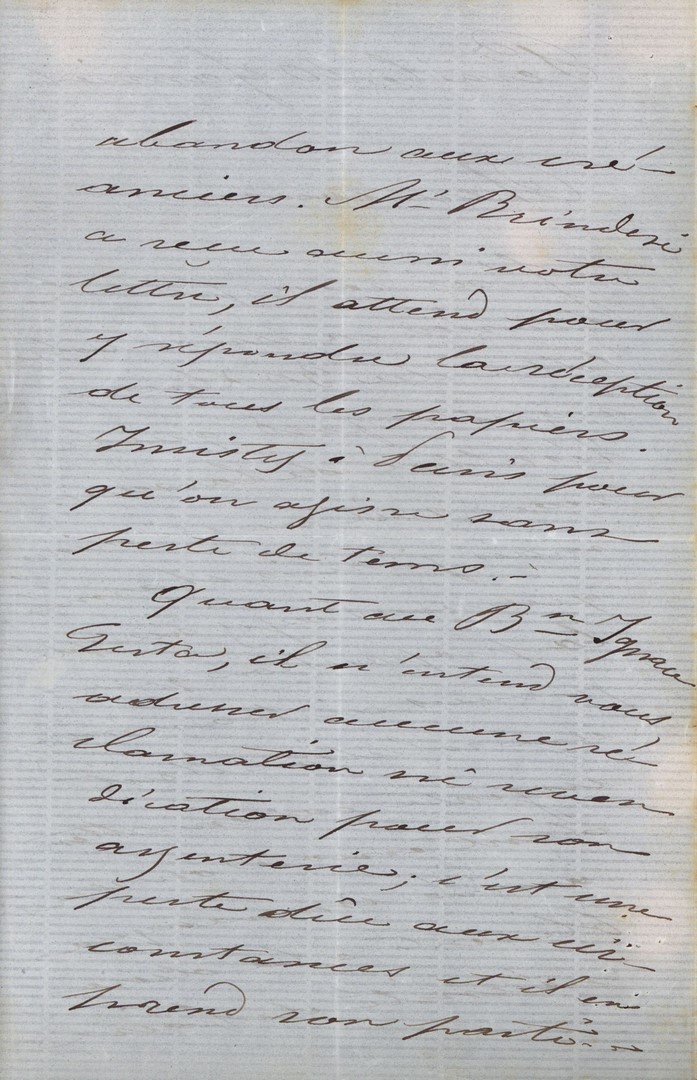 abandon aux cré-
anciers. Mr Brinderi
a reçu aussi votre
lettre, il attend pour
y répondre la réception
de tous les papiers.
à Paris pour
qu'on agisse sans
perte de tems.-
Quant au Bn Ignace
il n'entend vous
adresser aucune ré-
clamation ni reven
dication pour son
argenterie; c'est une
perte dûe aux cir-
constances et il en
prend son parti.-